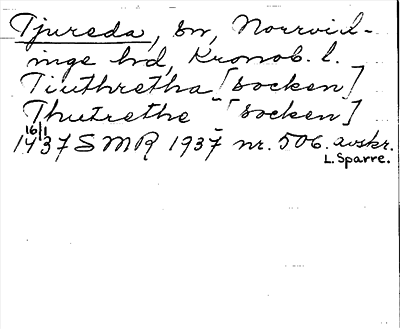 Tjureda, sn, Norrvid-
inge hd, Kronob. l.
Tiuthretha [socken]
Thutrethe [socken]
16/1
1437 SMR 1937 nr. 506. avskr.
L. Sparre.